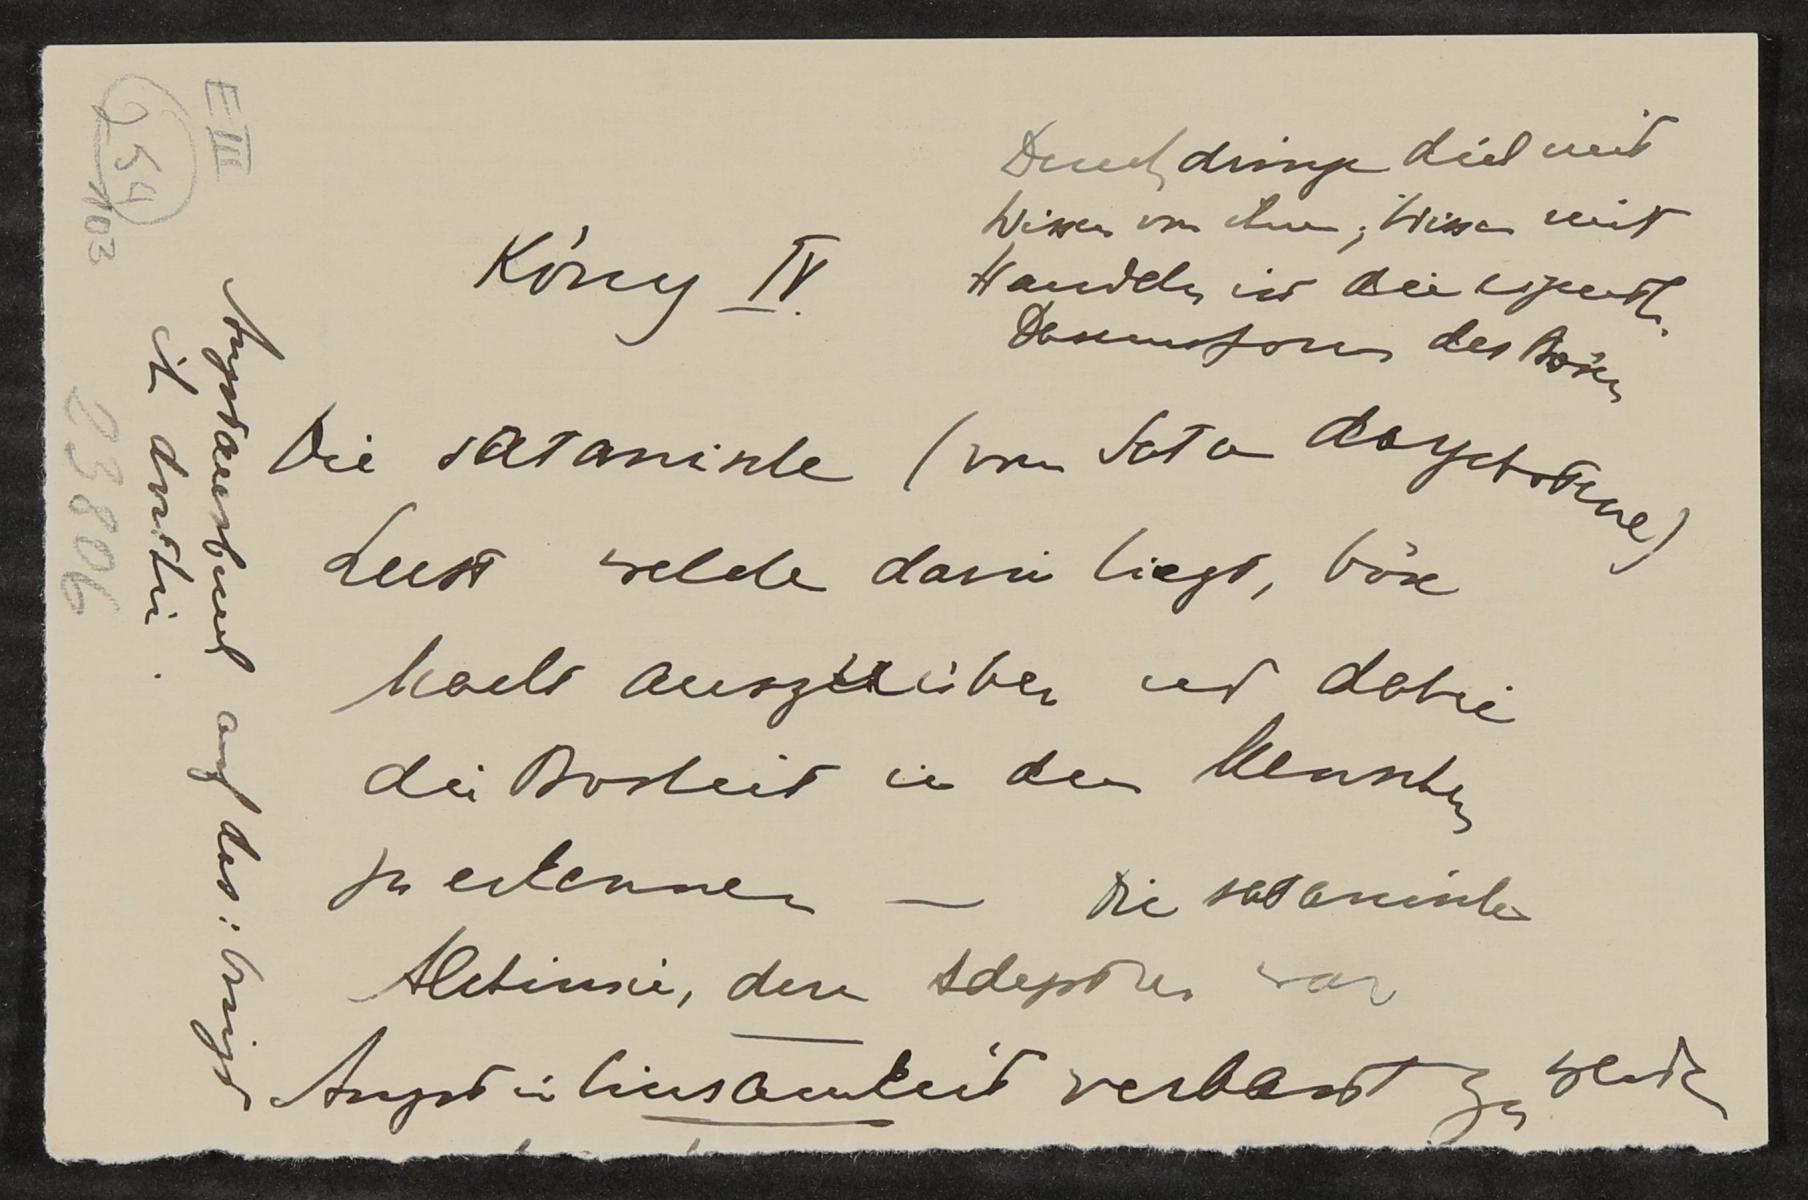 E III
254
103
23806
König IV.
Durchdringe dich mit
Wissen von ihm; Wissen mit
Handeln ist die eigentl.
Daseinsform des Bösen
Die satanische (von Satan dargebotene)
Lust welche darin liegt, böse
Macht auszuüben und dabei
die Bosheit in den Menschen
zu erkennen — Die satanische
Alchimie, deren Adepten vor
Angst in Einsamkeit verbannt zu werden
auf das: bringt
ich dorthin.